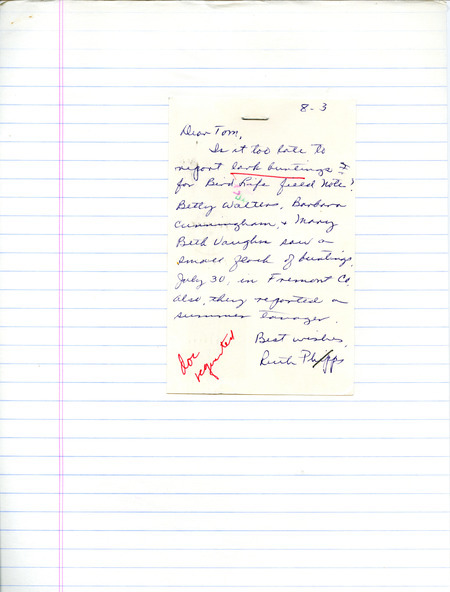 8-3
Dear Tom,
Is it too late to
report lark buntings
for Bird Life field Note?
Betty Walters, Barbara
Cunningham, & Mary
Beth Vaughn saw a
small flock of buntings,
July 30, in Fremont Co.
Also, they reported a
summer tanager.
Best wishes,
Ruth Phipps
doc
requested